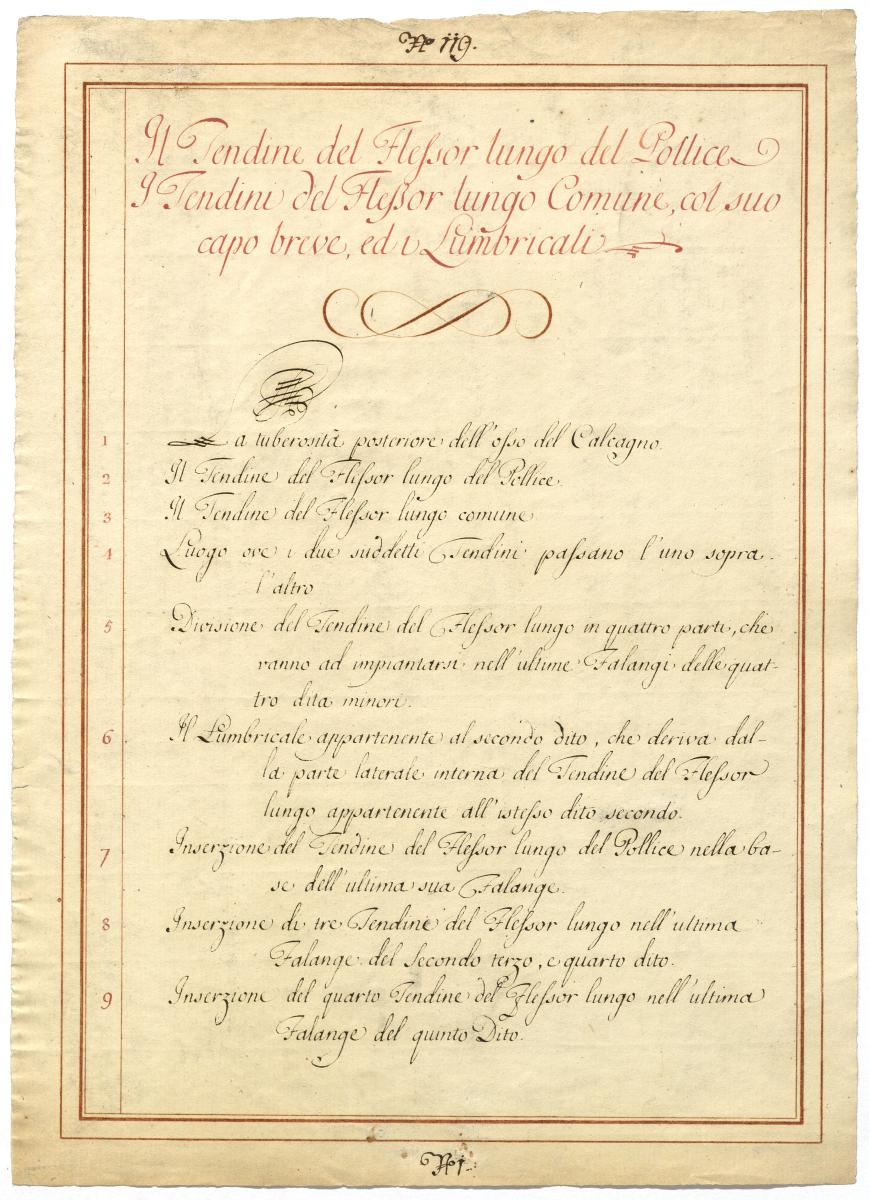 No 119.
Il Tendine del Flessor lungo del Pollice
I Tendini del Flessor lungo Comune, col suo
capo breve, ed i Lumbricali
1 La tuberosità posteriore dell'osso del Calcagno.
2 Il Tendine del Flessor lungo del Pollice.
3 Il Tendine del Flessor lungo comune
4 Luogo ove i due suddetti Tendini passano l'uno sopra
l'altro
5 Divisione del Tendine del Flessor lungo in quattro parti, che
vanno ad impiantarsi nell'ultime Falangi delle quat-
tro dita minori.
6 Il Lumbricale appartenente al secondo dito, che deriva dal-
la parte laterale interna del Tendine del Flessor
lungo appartenente all'istesso dito secondo.
7 Inserzione del Tendine del Flessor lungo del Pollice nella ba-
se dell'ultima sua Falange.
8 Inserzione di tre Tendine del Flessor lungo nell'ultima
Falange del Secondo terzo, e quarto dito.
9 Inserzione del quarto Tendine del Flessor lungo nell'ultima
Falange del quinto Dito.
No 1.